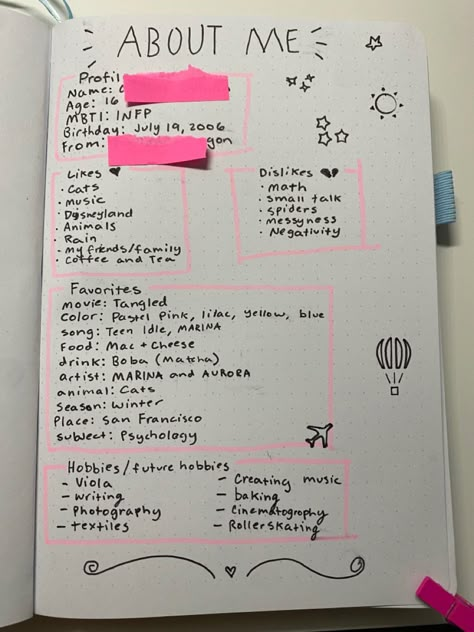 ABOUT ME
Profil
Name:
Age: 16
MBTI: INFP
Birthday: July 19, 2006
From: gon
Likes
· Cats
· music
· Disneyland
· Animals
· Rain
· my friends/family
· Coffee and Tea
Dislikes
· Math
· small talk
· spiders
· messyness
· Negativity
Favorites
movie: Tangled
Color: Pastel Pink, lilac, yellow, blue
song: Teen Idle, MARINA
Food: Mac + Cheese
drink: Boba (Matcha)
artist: MARINA and AURORA
animal: Cats
Season: Winter
Place: San Francisco
subject: Psychology
Hobbies/future hobbies
- Viola
- writing
- Photography
- textiles
- Creating music
- baking
- Cinematography
- Rollerskating